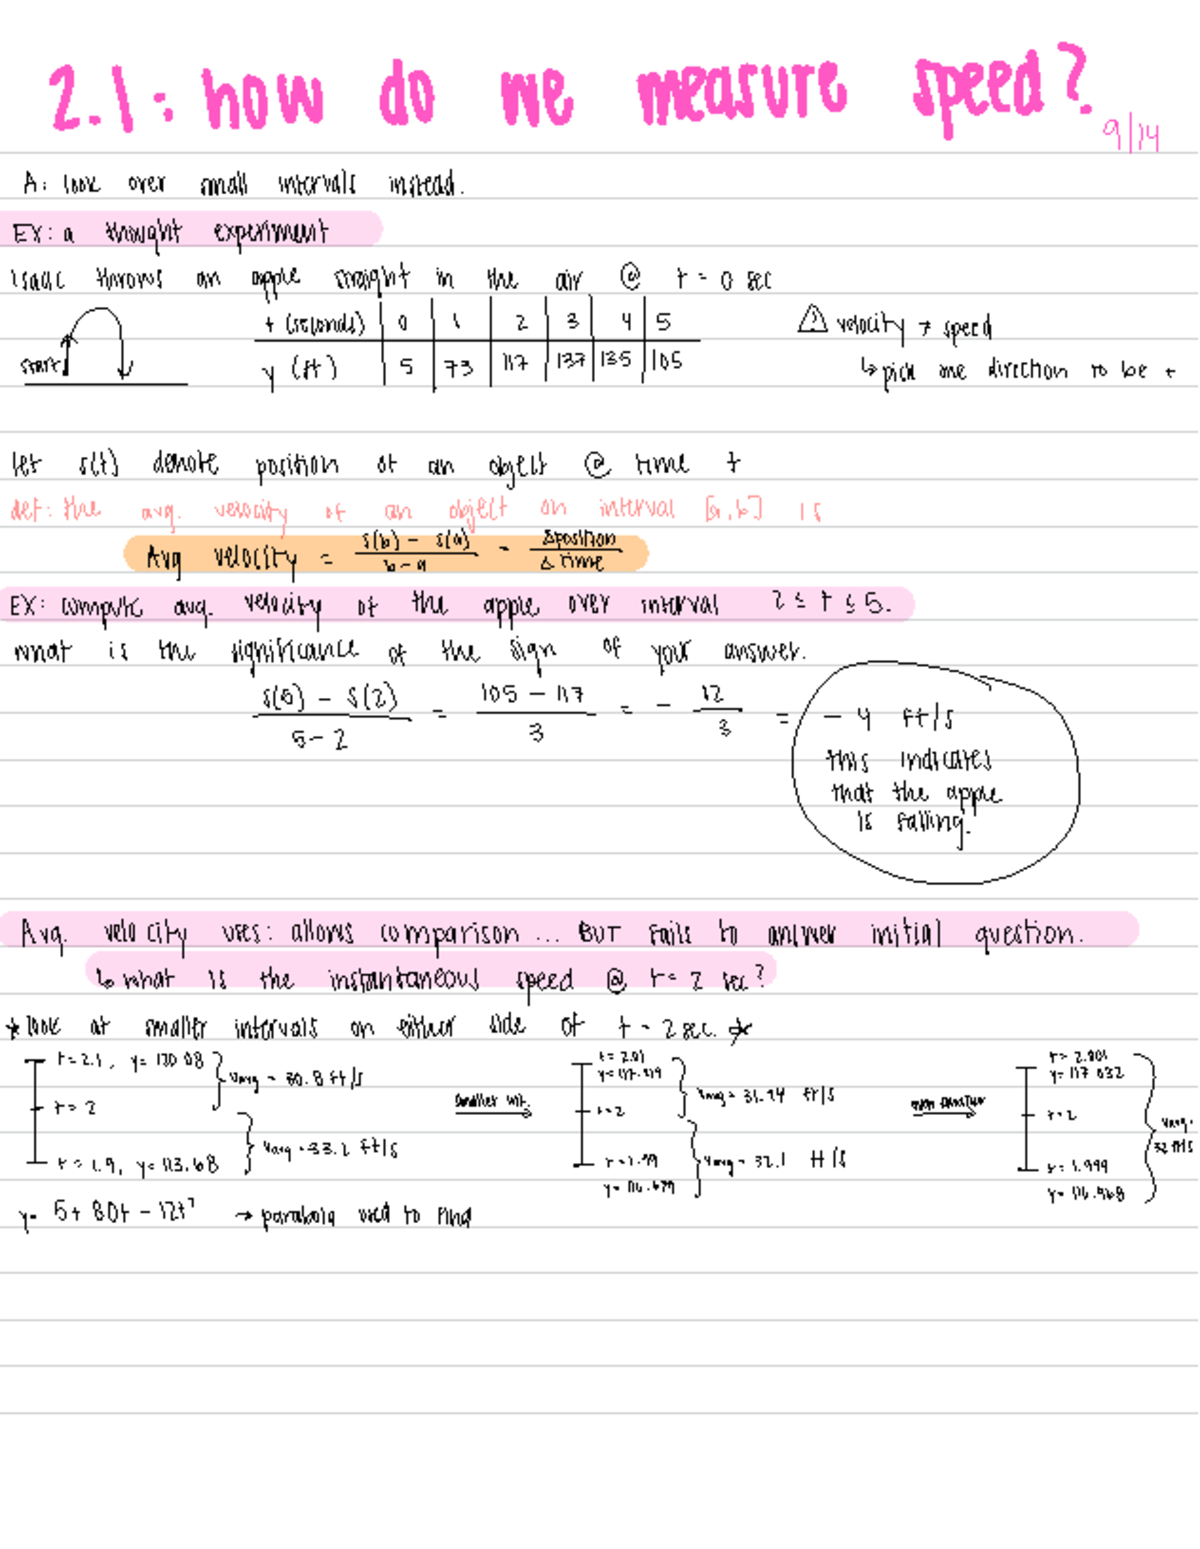 2.1: how do we measure speed?
9/14
A: look over small intervals instead.
EX: a thought experiment
Isaac throws an apple straight in the air @ t = 0 sec
start
t (seconds) 0 1 2 3 4 5
y (ft) 5 73 117 137 135 105
⚠ velocity ≠ speed
↳ pick one direction to be +
let s(t) denote position of an object @ time t
def: the avg. velocity of an object on interval [a,b] is
Avg velocity = s(b) - s(a) / b - a = Δposition / Δ time
EX: compute avg. velocity of the apple over interval 2 ≤ t ≤ 5.
what is the significance of the sign of your answer.
s(5) - s(2) / 5 - 2 = 105 - 117 / 3 = - 12 / 3 = - 4 ft/s
this indicates
that the apple
is falling.
Avg. velocity uses: allows comparison ... BUT fails to answer initial question.
↳ what is the instantaneous speed @ t = 2 sec?
* look at smaller intervals on either side of t = 2 sec. *
t = 2.1, y = 120.08
vavg = 30.8 ft/s
t = 2
vavg = 33.2 ft/s
t = 1.9, y = 113.68
smaller int.
t = 2.01
y = 117.319
vavg = 31.94 ft/s
t = 2
vavg = 32.1 ft/s
t = 1.99
y = 116.679
t = 2.001
y = 117.032
t = 2
vavg =
32 ft/s
t = 1.999
y = 116.968
y = 5 + 80t - 12t² → parabola used to find